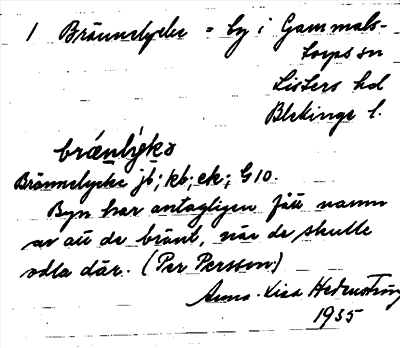 1 Brännelycke = by i Gammals-
torps sn
Listers hd
Blekinge l.
brænlýkə
Brännelycke jb; kb; ek; G10.
Byn har antagligen fått namn
av att de bränt, när de skulle
odla där. (Per Persson.)
Anna-Lisa Hedenström
1935